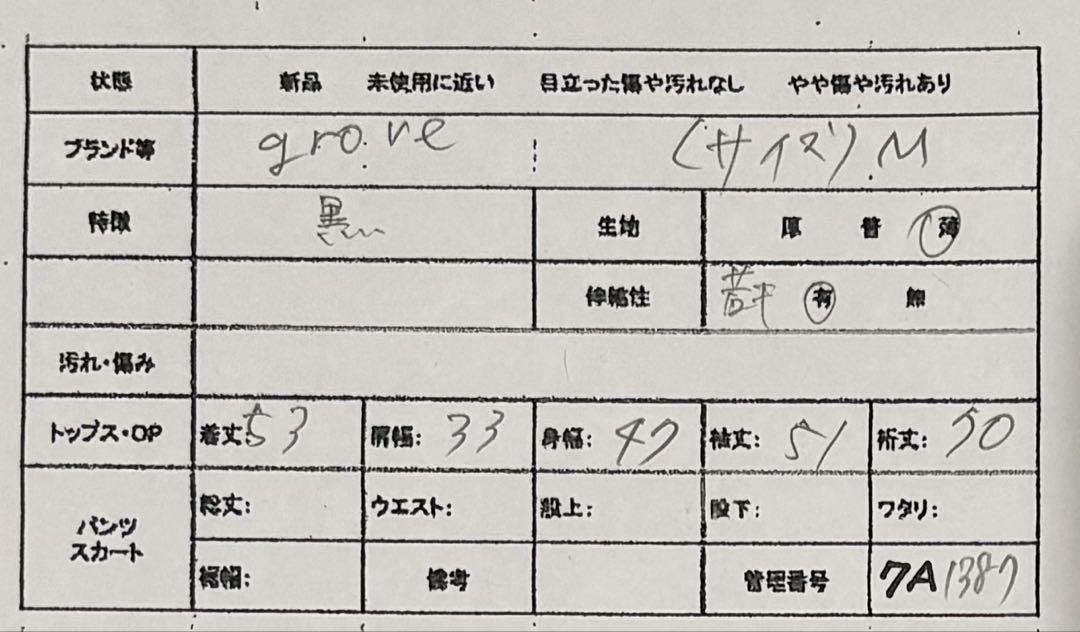 状態 新品 未使用に近い 目立った傷や汚れなし やや傷や汚れあり
ブランド等 grove (サイズ) M
特徴 黒 生地 厚 普 薄
伸縮性 若干 有 無
汚れ・傷み
トップス・OP 着丈: 53 肩幅: 33 身幅: 47 袖丈: 51 裄丈:
パンツ スカート 総丈: ウエスト: 股上: 股下: ワタリ:
裾幅: 備考 管理番号 7A1387